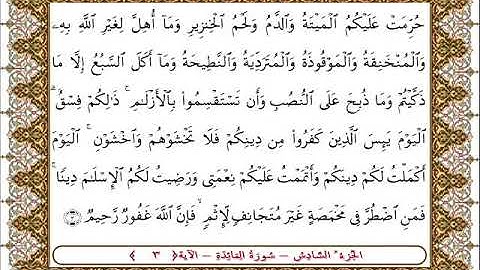 حُرِّمَتْ عَلَيْكُمُ الْمَيْتَةُ وَالدَّمُ وَلَحْمُ الْخِنزِيرِ وَمَآ أُهِلَّ لِغَيْرِ اللَّهِ بِهِۦ
وَالْمُنْخَنِقَةُ وَالْمَوْقُوذَةُ وَالْمُتَرَدِّيَةُ وَالنَّطِيحَةُ وَمَآ أَكَلَ السَّبُعُ إِلَّا مَا
ذَكَّيْتُمْ وَمَا ذُبِحَ عَلَى النُّصُبِ وَأَن تَسْتَقْسِمُوا۟ بِالْأَزْلَٰمِ ۚ ذَٰلِكُمْ فِسْقٌ ۗ
الْيَوْمَ يَئِسَ الَّذِينَ كَفَرُوا۟ مِن دِينِكُمْ فَلَا تَخْشَوْهُمْ وَاخْشَوْنِ ۚ الْيَوْمَ
أَكْمَلْتُ لَكُمْ دِينَكُمْ وَأَتْمَمْتُ عَلَيْكُمْ نِعْمَتِى وَرَضِيتُ لَكُمُ الْإِسْلَٰمَ دِينًا ۚ
فَمَنِ اضْطُرَّ فِى مَخْمَصَةٍ غَيْرَ مُتَجَانِفٍ لِّإِثْمٍ ۙ فَإِنَّ اللَّهَ غَفُورٌ رَّحِيمٌ ﴿٣﴾
الجزء السادس – سورة المائدة – الآية﴿ ٣ ﴾